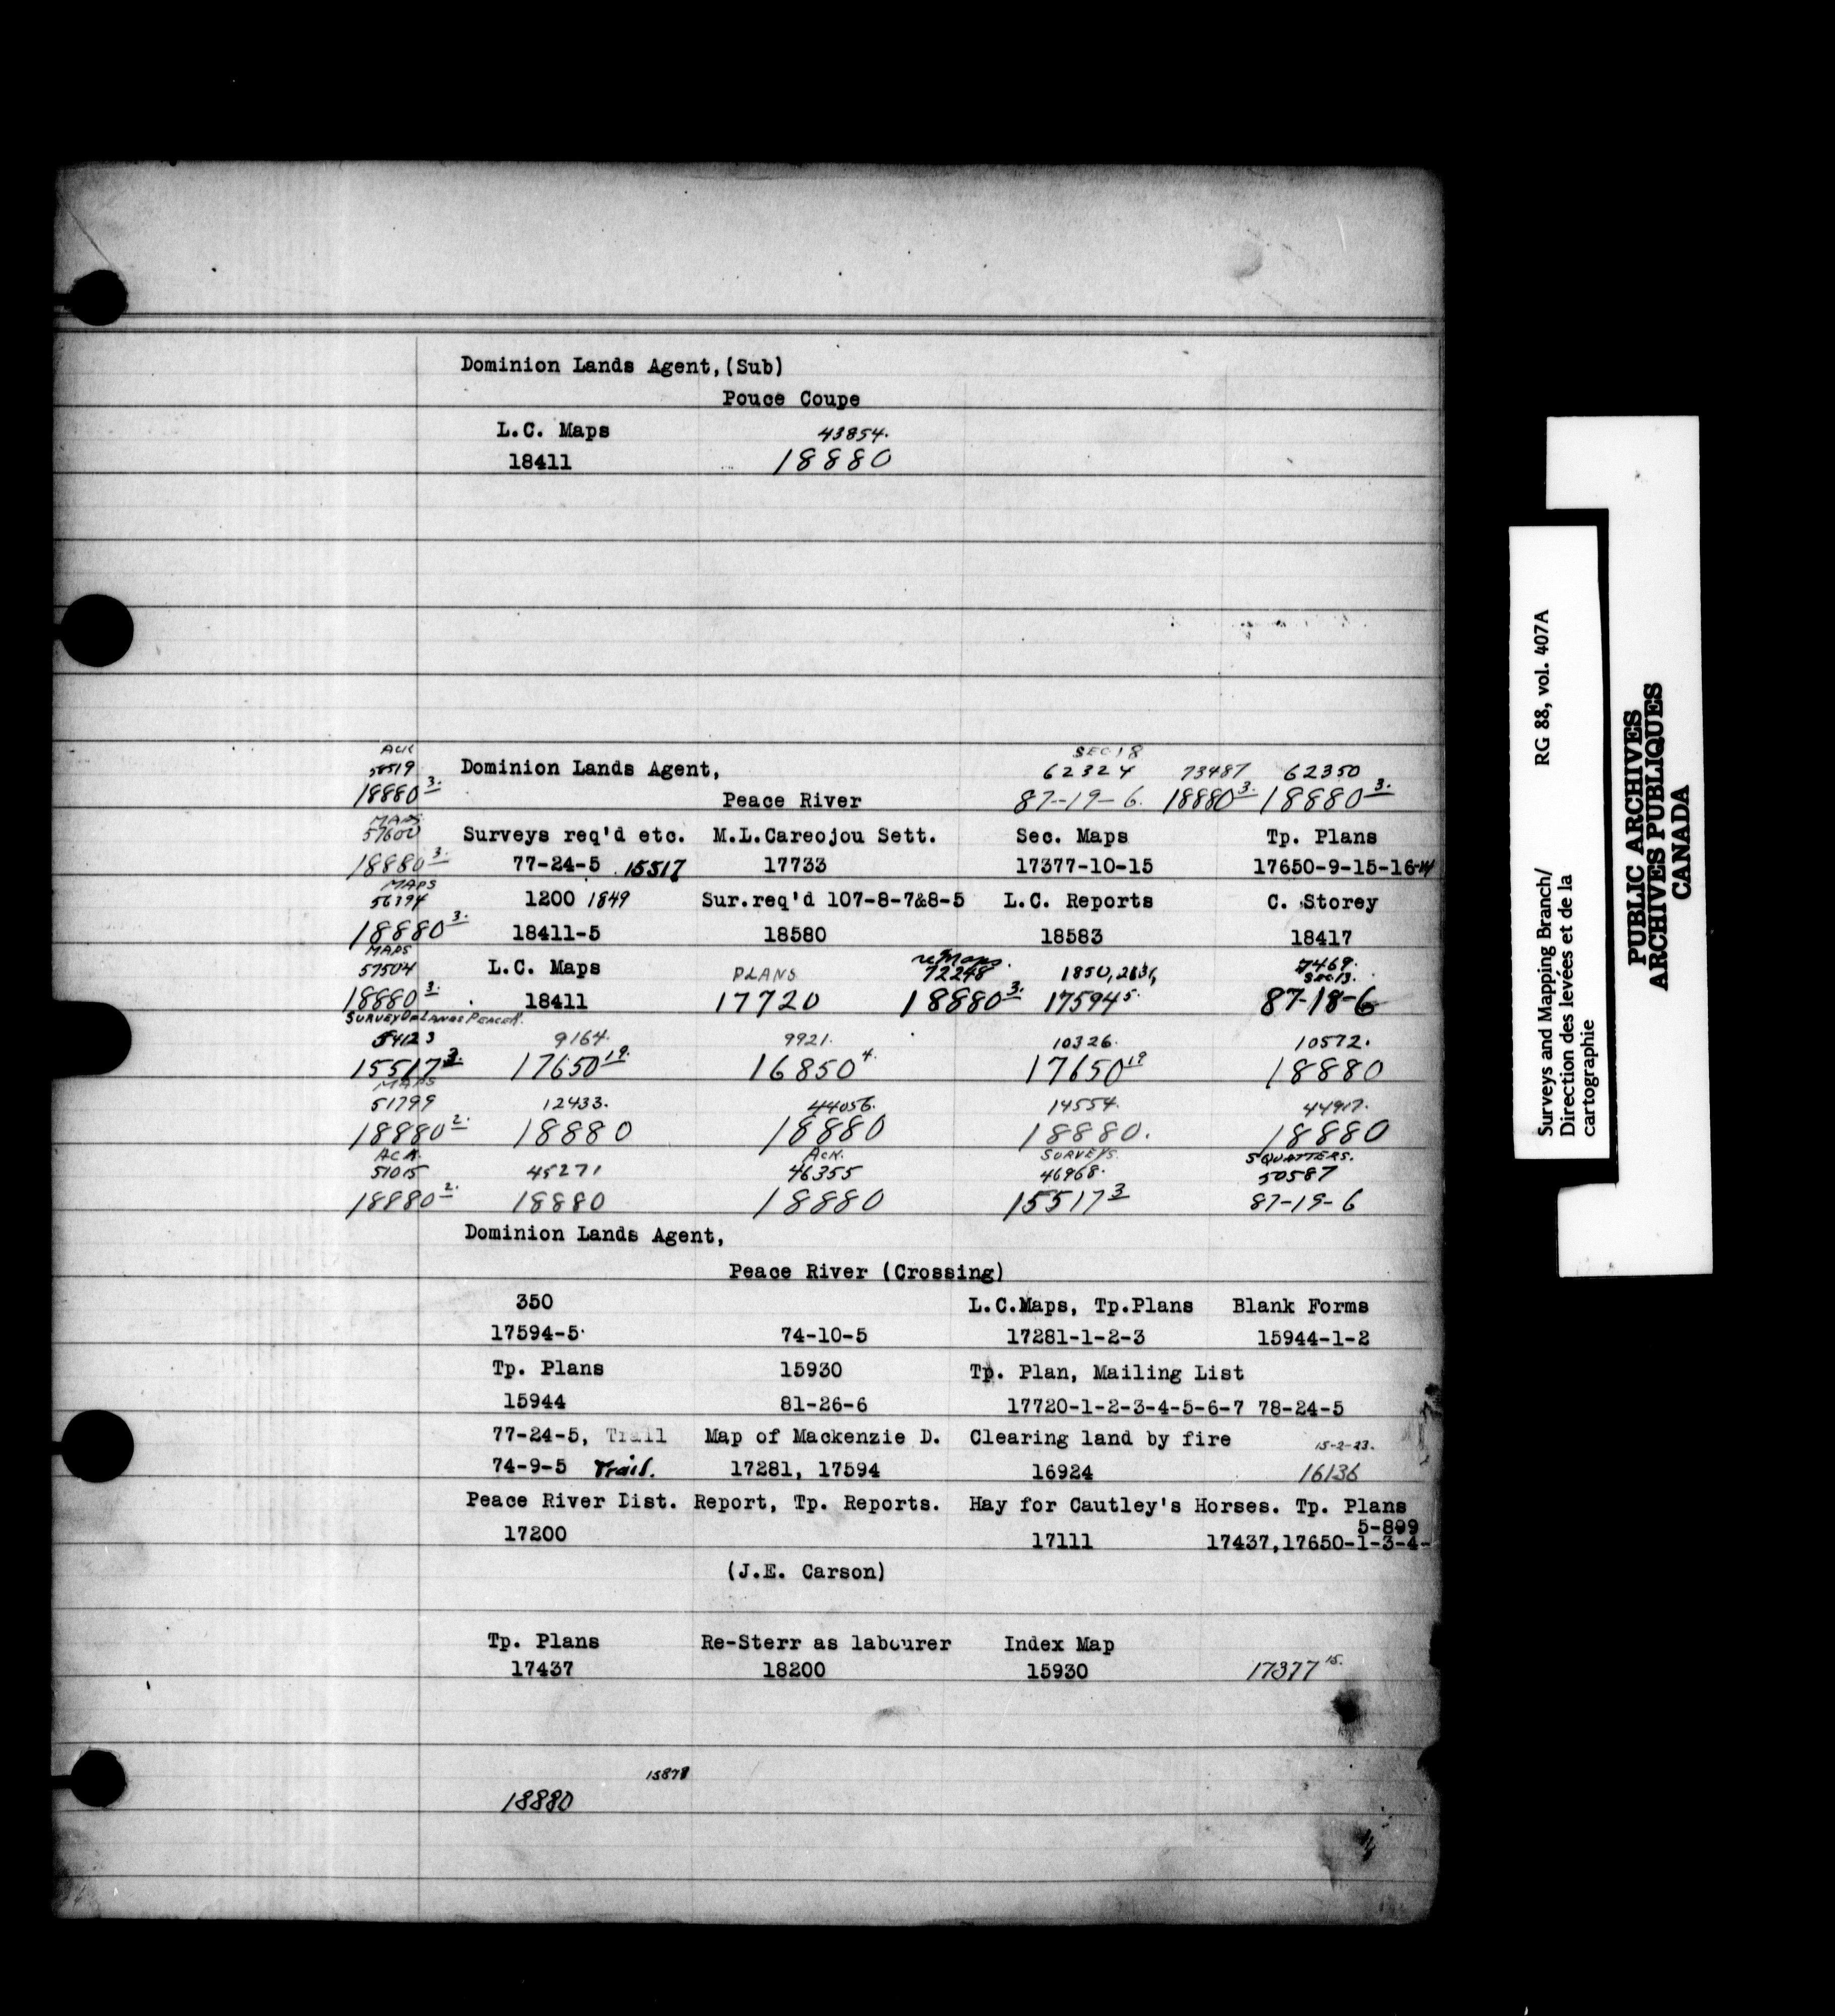 Dominion Lands Agent,(Sub)
Pouce Coupe
L.C. Maps 43854.
18411 18880
ACK SEC 18
58519 Dominion Lands Agent, 62324 73487 62350
18880 3. Peace River 87-19-6. 18880 3. 18880 3.
MAPS
57600 Surveys req'd etc. M.L.Careojou Sett. Sec. Maps Tp. Plans
18880 3. 77-24-5 15517 17733 17377-10-15 17650-9-15-16-14
MAPS
56394 1200 1849 Sur.req'd 107-8-7&8-5 L.C. Reports C. Storey
18880 3. 18411-5 18580 18583 18417
MAPS re Maps. 7469.
57504 L.C. Maps PLANS 72248 1850, 2636, Sec. 13.
18880 3. 18411 17720 18880 3. 17594 5. 87-18-6
SURVEY OF LANDS PEACE R.
54123 9164. 9921. 10326. 10572.
15517 3. 17650 19. 16850 4. 17650 19 18880
MAPS
51799 12433. 44056. 14554. 44917.
18880 2. 18880 18880 18880. 18880
ACK. ACK. SURVEYS. SQUATTERS.
51015 45271 46355 46968. 50587
18880 2. 18880 18880 15517 3 87-19-6
Dominion Lands Agent,
Peace River (Crossing)
350 L.C.Maps, Tp.Plans Blank Forms
17594-5 74-10-5 17281-1-2-3 15944-1-2
Tp. Plans 15930 Tp. Plan, Mailing List
15944 81-26-6 17720-1-2-3-4-5-6-7 78-24-5
77-24-5, Trail Map of Mackenzie D. Clearing land by fire 15-2-23.
74-9-5 Trail. 17281, 17594 16924 16136
Peace River Dist. Report, Tp. Reports. Hay for Cautley's Horses. Tp. Plans
5-899
17200 17111 17437,17650-1-3-4-
(J.E. Carson)
Tp. Plans Re-Sterr as labourer Index Map
17437 18200 15930 17377 15.
15878
18880
Surveys and Mapping Branch/ RG 88, vol. 407A
Direction des levées et de la
cartographie
PUBLIC ARCHIVES
ARCHIVES PUBLIQUES
CANADA